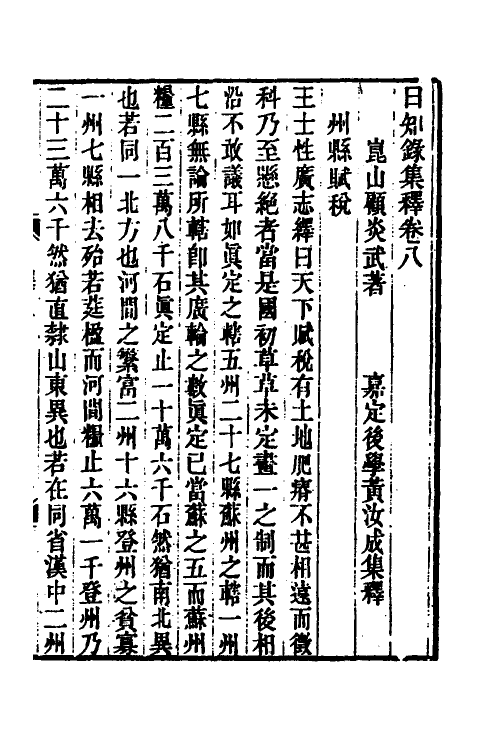 日知錄集釋卷八
崑山顧炎武著　嘉定後學黃汝成集釋
州縣賦稅
王士性廣志繹曰天下賦稅有土地肥瘠不甚相遠而徵
科乃至懸絕者當是國初草草未定畫一之制而其後相
沿不敢議耳如眞定之轄五州二十七縣蘇州之轄一州
七縣無論所轄卽其廣輪之數眞定已當蘇之五而蘇州
糧二百三萬八千石眞定止一十萬六千石然猶南北異
也若同一北方也河間之繁富二州十六縣登州之貧寡
一州七縣相去殆若莛楹而河間糧止六萬一千登州乃
二十三萬六千然猶直隸山東異也若在同省漢中二州